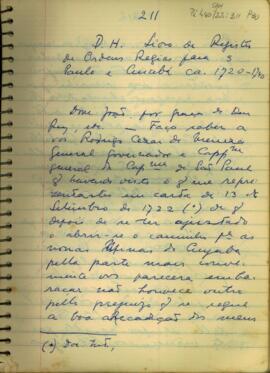 211
D. H. Livro de Registro
de Ordens Regias para S
Paulo e Cuiabá ca. 1720-1740
Dom João, por graça de Deus
Rey, etc. — Faço saber a
vos Rodrigo Cezar de Menezes
General Governador e Cappam
general da Capnia de São Paulo
q havendo visto o q me repre
zentastes em carta de 13 de
Setembro de 1722 (*) de q
depois de se ter ajustado
o abrir-se o caminho pa as
novas Minas do Cuyaba
pella parte mais conve-
niente vos parecera emba-
raçar não houvece outro
pello prejuizo q se segue
a boa arrecadação dos meus
(*) Doc. Int.,